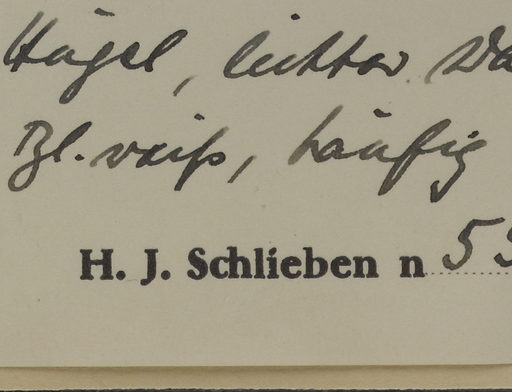 Hügel, lichter Wa
Bl. weiß, häufig
H. J. Schlieben n 5